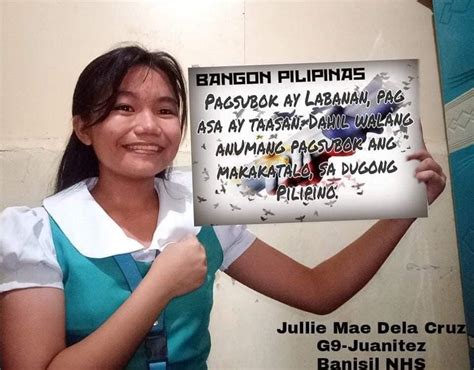 BANGON PILIPINAS
PAGSUBOK AY LABANAN, PAG
ASA AY TAASAN. DAHIL WALANG
ANUMANG PAGSUBOK ANG
MAKAKATALO, SA DUGONG
PILIPINO.
Jullie Mae Dela Cruz
G9-Juanitez
Banisil NHS